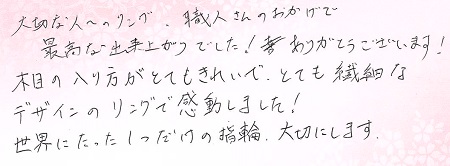 大切な人へのリング、職人さんのおかげで
最高な出来上がりでした！ ありがとうございます！
木目の入り方がとてもきれいで、とても繊細な
デザインのリングで感動しました！
世界にたった1つだけの指輪、大切にします．